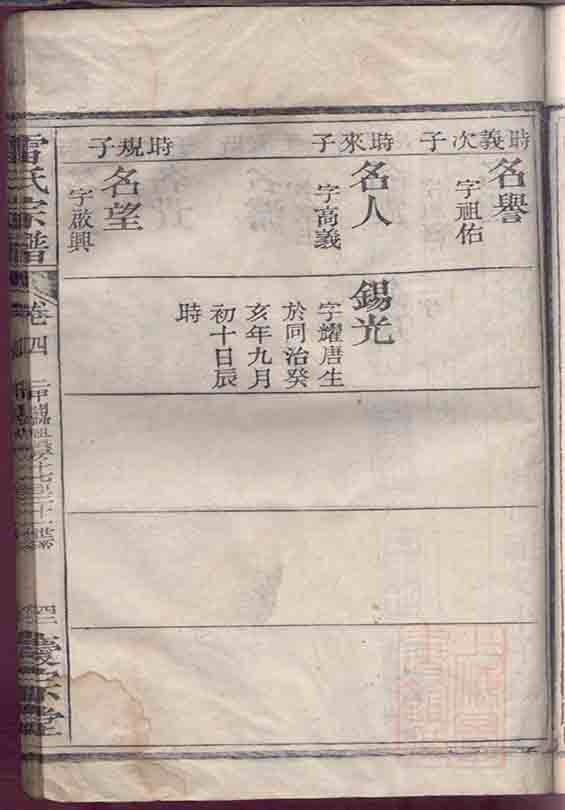 時義次子
名譽
字祖佑
時來子
名人
字高義
時規子
名望
字啟興
錫光
字耀唐生
於同治癸
亥年九月
初十日辰
時
雷氏宗譜
卷四